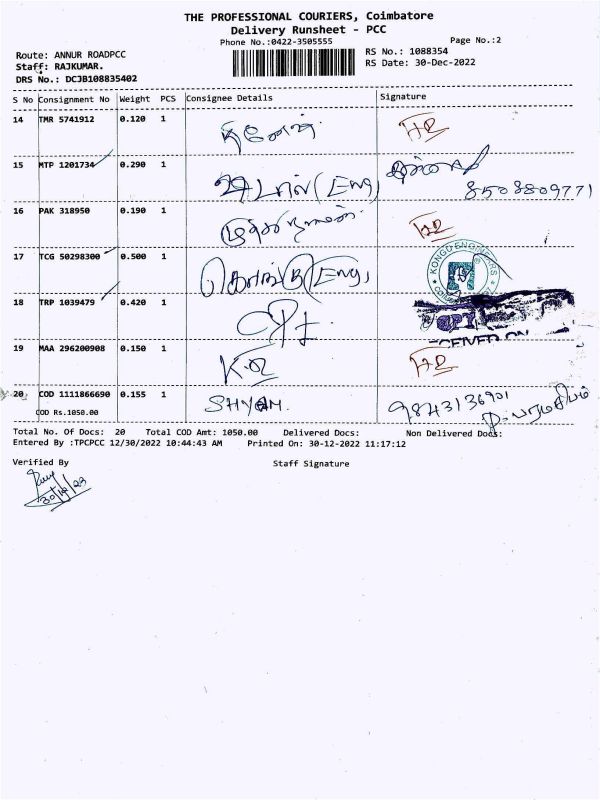 THE PROFESSIONAL COURIERS, Coimbatore
Delivery Runsheet - PCC
Phone No.:0422-3505555
Page No.:2
Route: ANNUR ROADPCC
RS No.: 1088354
Staff: RAJKUMAR.
RS Date: 30-Dec-2022
DRS No.: DCJB108835402
S No Consignment No Weight PCS Consignee Details Signature
14 TMR 5741912 0.120 1
15 MTP 1201734 0.290 1 (Eng)
8508809771
16 PAK 318950 0.190 1
17 TCG 50298300 0.500 1 (Eng)
KONGO ENGINEERS
18 TRP 1039479 0.420 1
19 MAA 296200908 0.150 1
20 COD 1111866690 0.155 1 SHYAM. 9843136901
COD Rs.1050.00
Total No. Of Docs: 20 Total COD Amt: 1050.00 Delivered Docs: Non Delivered Docs:
Entered By :TPCPCC 12/30/2022 10:44:43 AM Printed On: 30-12-2022 11:17:12
Verified By Staff Signature
30/12/22